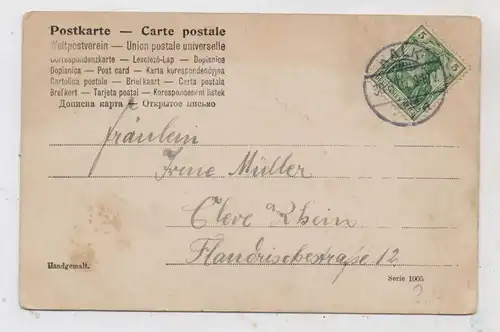 Postkarte — Carte postale
Weltpostverein — Union postale universelle
Correspondenzkarte — Levelező-Lap — Dopisnice
Dopisnica — Post card — Karta korespondencyjna
Cartolina postale — Briefkaart — Carta postala
Brefkort — Tarjeta postal — Korespondeni listek
Дописна карта — Открытое письмо
5 5
KALK
Fräulein
Irene Müller
Cleve a/Rhein
Flandrischestraße 12
Handgemalt.
Serie 1005